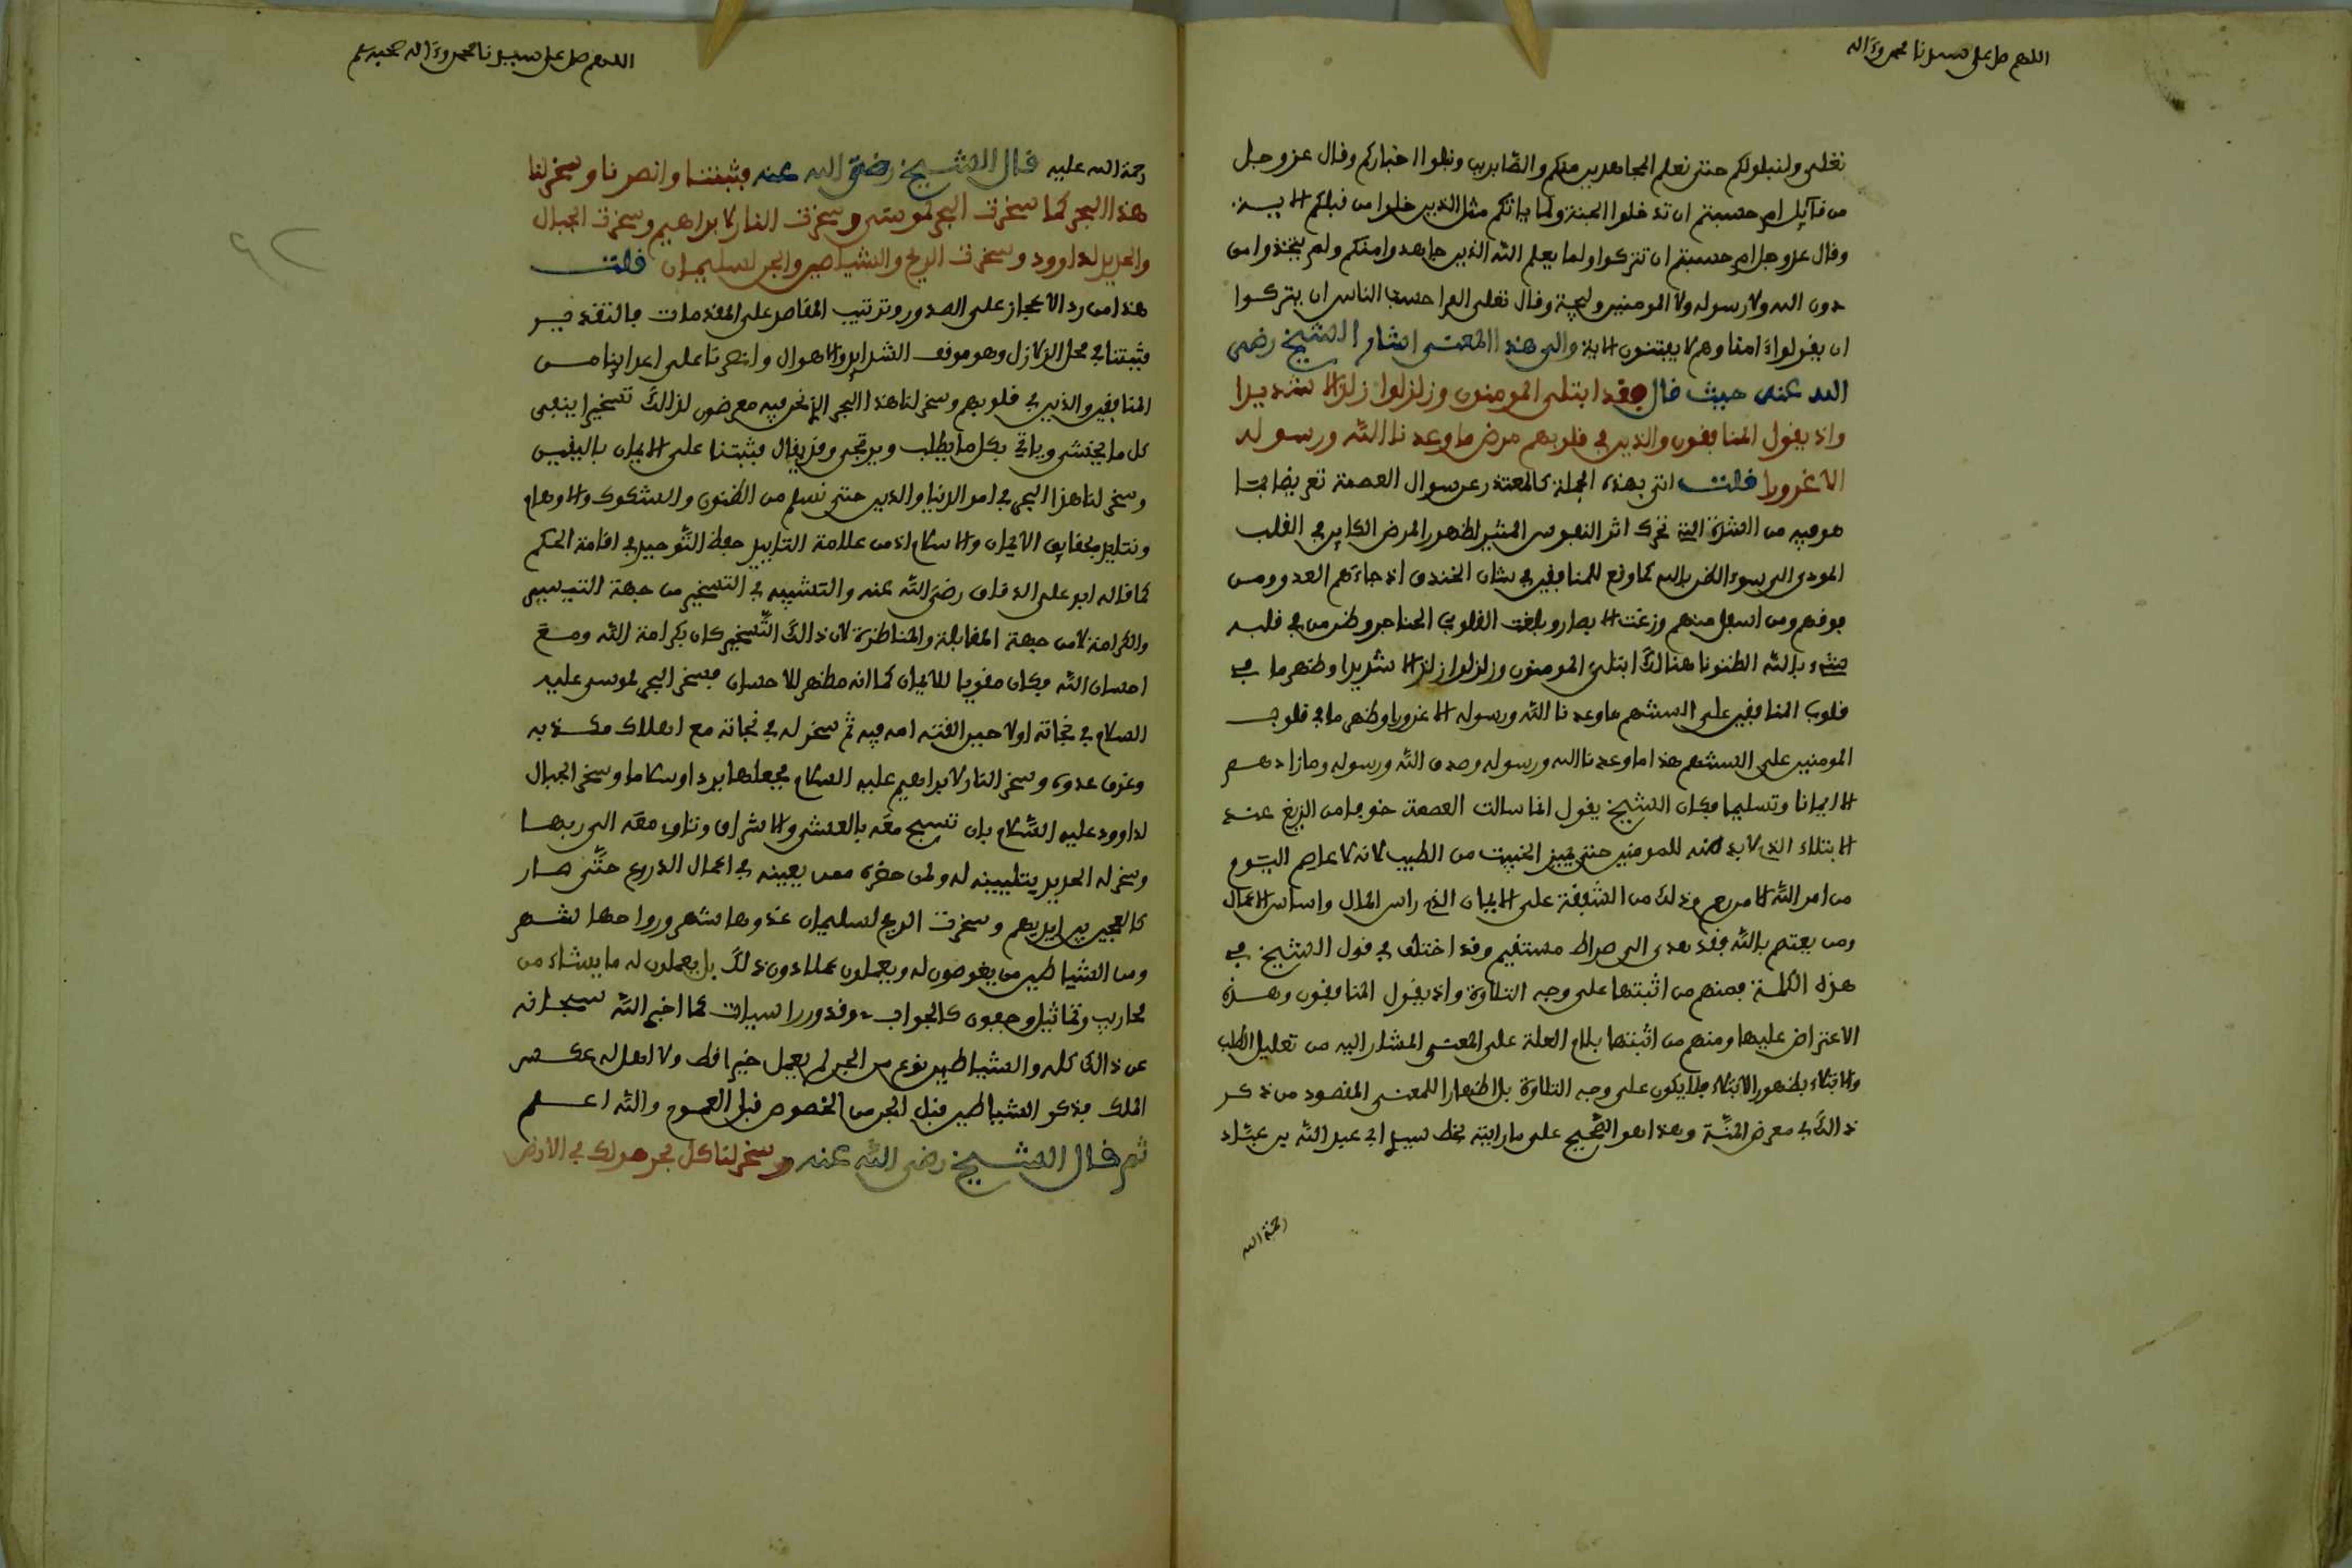 اللهم صل على سيدنا محمد وءاله
تعلى ولنبلونكم حتى نعلم المجاهدين منكم والصابرين ونبلوا اخباركم وقال عز وجل
من قآيل ام حسبتم ان تدخلوا الجنة ولما ياتكم مثل الذين خلوا من قبلكم الايــة
وقال عز وجل ام حسبتم ان تتركوا ولما يعلم الله الذين جاهدوا منكم ولم يتخذوا من
دون الله ولا رسوله ولا المومنين وليجة وقال تعلى الم احسب الناس ان يتركوا
ان يقولوا ءامنا وهم لا يفتنون الاية والى هذا المعنى اشار الشيخ رضي
الله عنه حيث قال فقد ابتلى المومنون وزلزلوا زلزالا شديدا
واذ يقول المنافقون والذين في قلوبهم مرض ما وعدنا الله ورسوله
الا غرورا قلت اتى بهذه الجملة كالمعتذر عن سوال العصمة تعريضا بما
هو فيه من الشدة التي تحرك اثر النفوس المثير لظهور المرض الكاين في القلب
المودي الى سوء الظن بالله كما وقع للمنافقين في شان الخندق اذ جاءكم العدو ومن
فوقهم ومن اسفل منهم وزغت الابصار وبلغت القلوب الحناجر وظن من في قلبه
شيء بالله الظنونا هنالك ابتلى المومنون وزلزلوا زلزالا شديدا وظهر ما في
قلوب المنافقين على السنتهم ما وعدنا الله ورسوله الا غرورا وظهر ما في قلوب
المومنين على السنتهم هذا ما وعدنا الله ورسوله وصدق الله ورسوله وما زادهم
الا ايمانا وتسليما فكان الشيخ يقول انما سالت العصمة خوفا من الزيغ عند
الابتلاء الذي لا بد منه للمومنين حتى يميز الخبيث من الطيب لانه لا عاصم اليوم
من امر الله الا من رحم وذلك من الشفقة على الايمان الذي راس المال واساس الاعمال
ومن يعتصم بالله فقد هدى الى صراط مستقيم وقد اختلف في قول الشيخ في
هذه الكلمة فمنهم من اثبتها على وجه التلاوة واذ يقول المنافقون وهـذه
الاعتراض عليها ومنهم من اثبتها بلام العلة على المعنى المشار اليه من تعليل الطلب
والابتلاء بظهور الابتلاء فلا يكون على وجه التلاوة بل اظهارا للمعنى المقصود من ذكر
ذالك في معرض المنة وهذا هو الصحيح على ما رايته بخط سيدي ابي عبد الله بن عبّاد
رحمة الله
اللهم صل على سيدنا محمد وءاله وصحبه
رحمة الله عليه قال الشيخ رضي الله عنه فثبتنا وانصرنا وسخر لنا
هذا البحر كما سخرت البحر لموسى وسخرت النار لابراهيم وسخرت الجبال
والحديد لداوود وسخرت الريح والشياطين والجن لسليمان قلت
هذا من رد الاعجاز على الصدور وترتيب المقاصد على المقدمات فالتقدير
فثبتنا في محل الزلازل وهو موقف الشدايد والاهوال وانصرنا على اعداينا من
المنافقين والذين في قلوبهم وسخر لنا هذا البحر الذي نحن فيه معرضون لذالك تسخيرا ينفى
كل ما يختشى وياتي بكل ما يطلب ويرتجى وقد يقال فثبتنا على الايمان باليقين
وسخر لنا هذا البحر في امور الدنيا والدين حتى نسلم من الظنون والشكوك والاوهام
ونتايد بحقايق الايمان والاسلام اذ من علامة التاييد حفظ التوحيد في اقامة الحكم
كما قاله ابو على الدقاق رضي الله عنه والتشبيه في التسخير من جهة التيسير
والكرامة لا من جهة المقابلة والمناظرة لان ذالك التسخير كان بكرامة الله ومع
احسان الله فكان مقويا للايمان كما انه مظهر للاحسان فسخر البحر لموسى عليه
السلام في نجاته اولا حين القته امه فيه ثم سخر له في نجاته مع اهلاك مكذبه
وغرق عدوه وسخر النار لابراهيم عليه السلام فجعلها بردا وسلاما وسخر الجبال
لداوود عليه السلام بان تسبح معه بالعشي والاشراق وتناوب معه الى ربها
وسخر له الحديد بتليينه له ولمن حضره ممن يعينه في اعمال الدروع حتى صار
كالعجين بين ايديهم وسخرت الريح لسليمان غدوها شهر ورواحها شهر
ومن الشياطين من يغوصون له ويعملون عملا دون ذلك بل يعملون له ما يشاء من
محاريب وتماثيل وجفون كالجواب وقدور راسيات كما اخبر الله سبحانه
عن ذالك كله والشياطين نوع من الجن لم يعمل خيرا قط ولا اهل له عكس
الملك فذكر الشياطين قبل الجن من الخصوص قبل العموم والله اعلم
ثم قال الشيخ رضي الله عنه وسخر لنا كل بحر هو لك في الارض